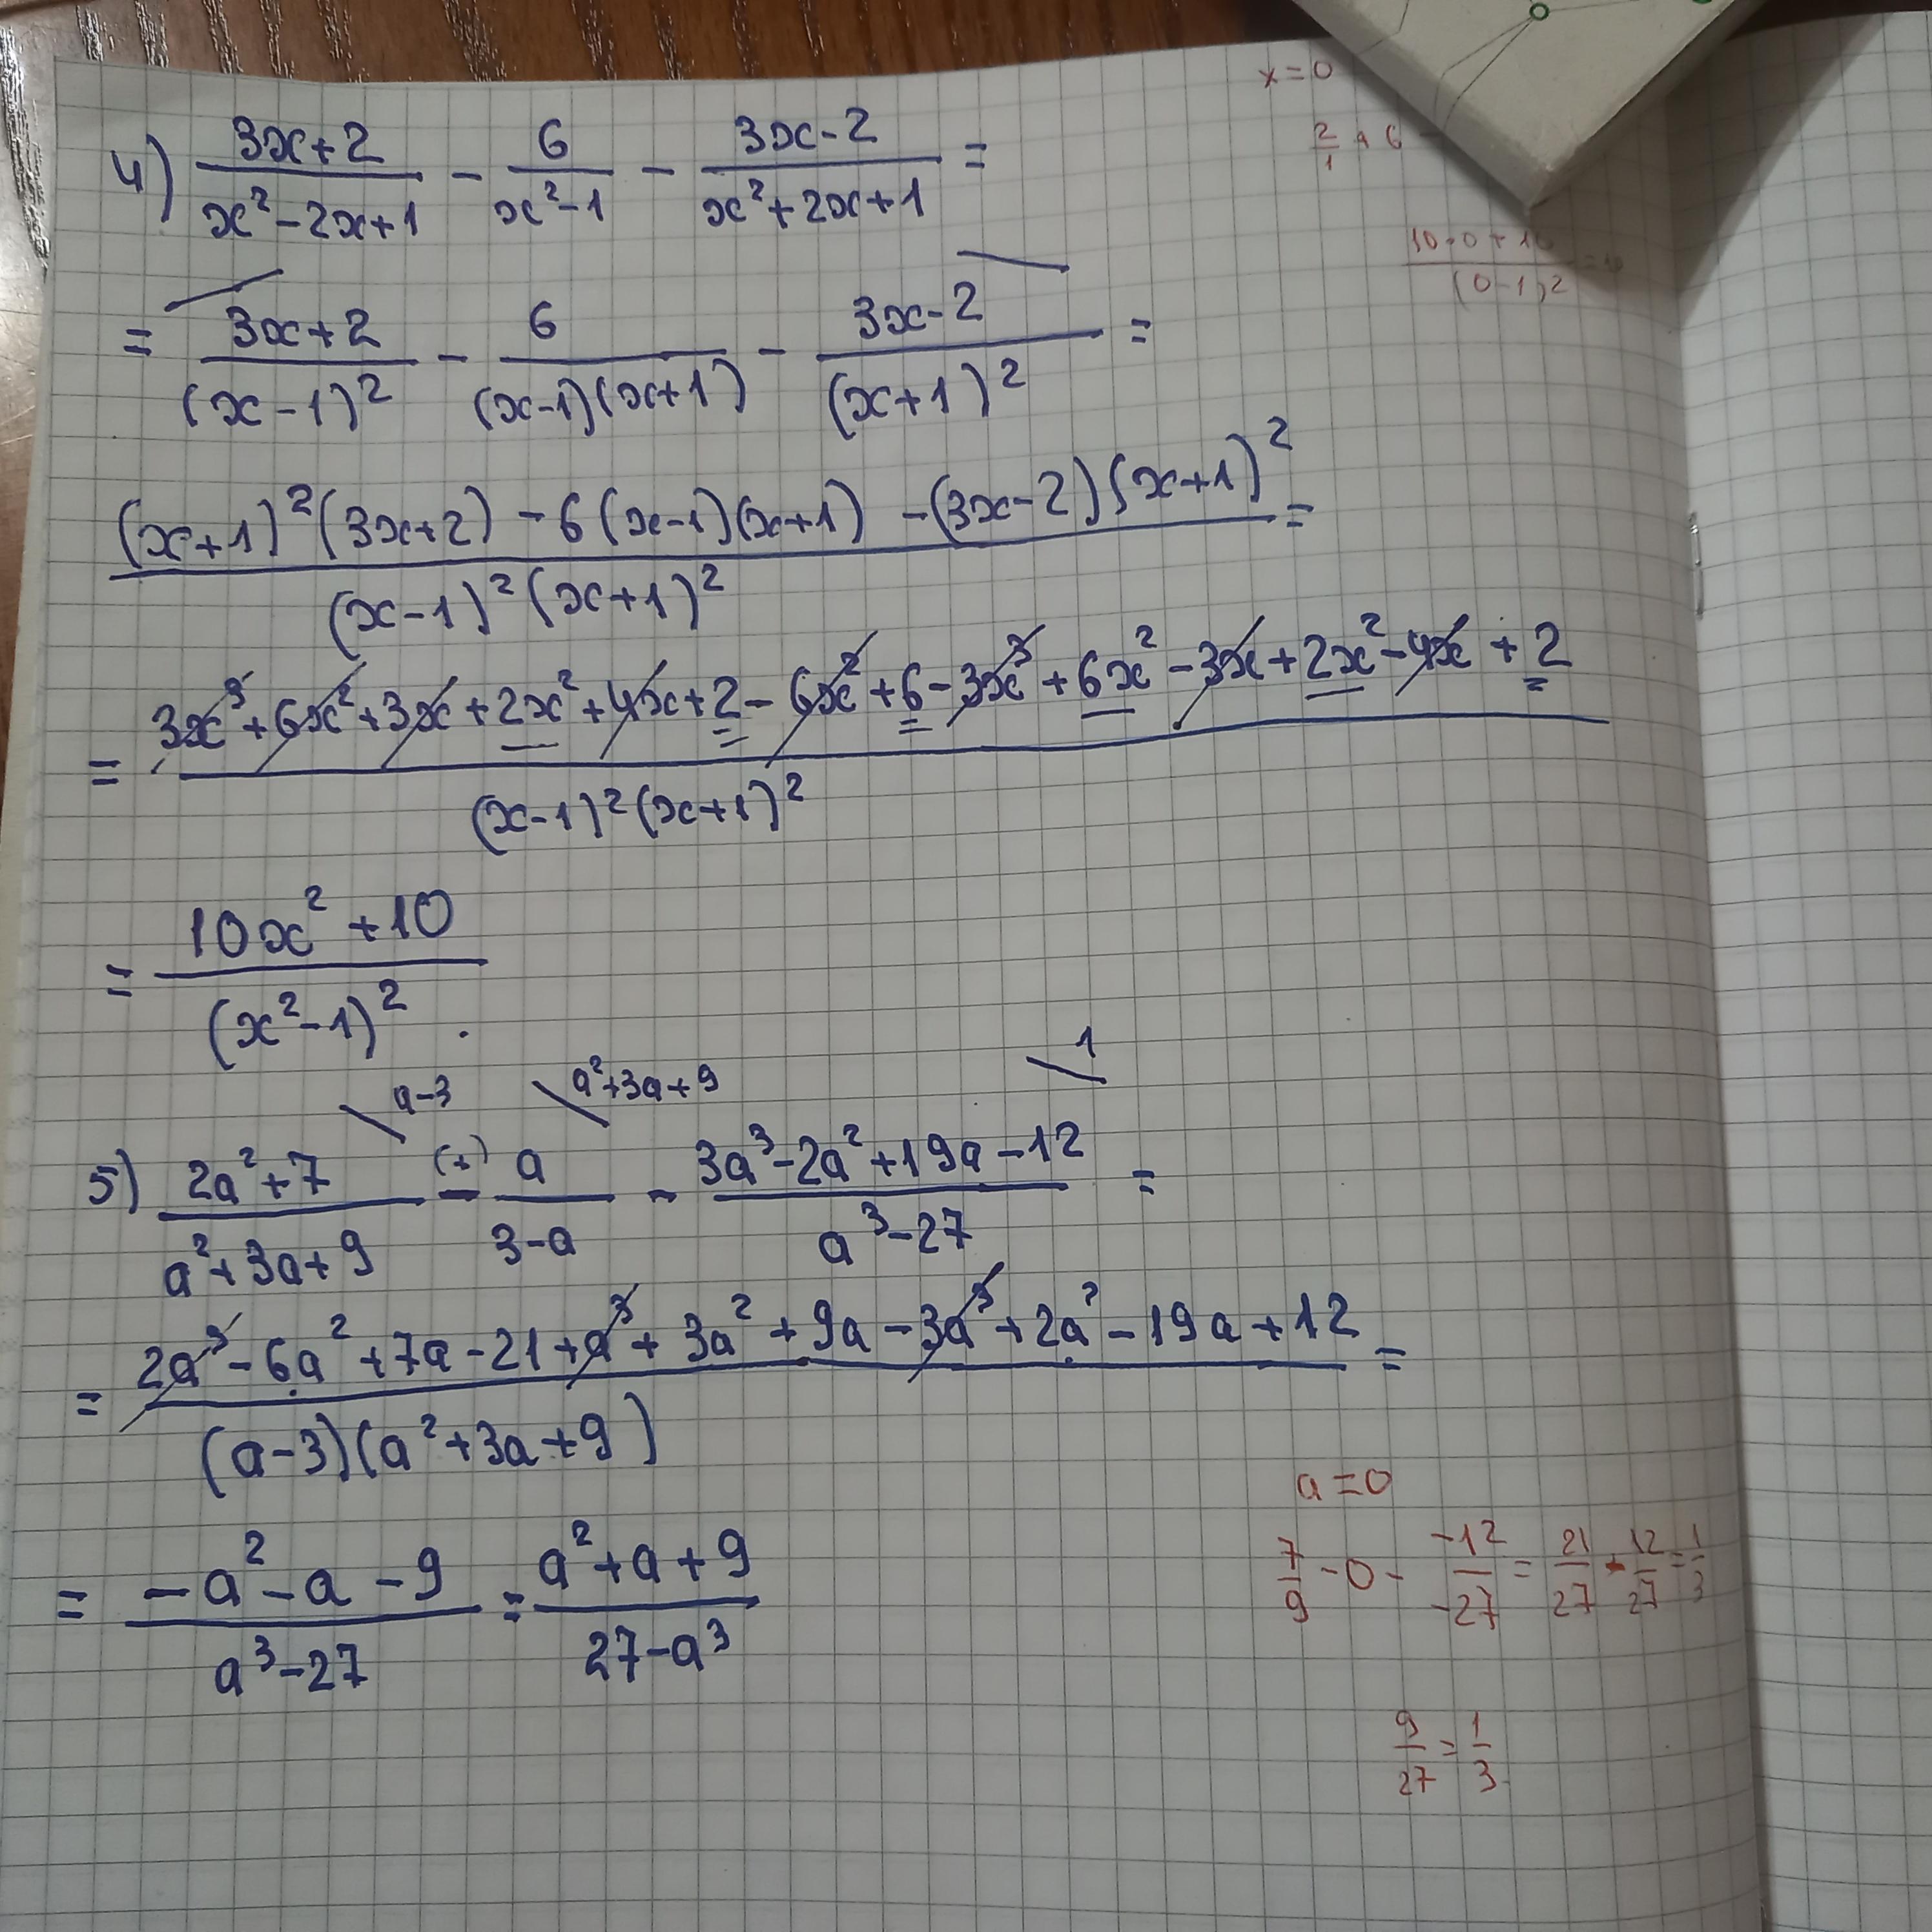 x=0
2/1 + 6
4) (3x+2)/(x²-2x+1) - 6/(x²-1) - (3x-2)/(x²+2x+1) =
(10·0+10)/(0-1)²
= (3x+2)/(x-1)² - 6/((x-1)(x+1)) - (3x-2)/(x+1)² =
((x+1)²(3x+2) - 6(x-1)(x+1) - (3x-2)(x+1)²)/((x-1)²(x+1)²) =
= (3x³+6x²+3x+2x²+4x+2-6x²+6-3x³+6x²-3x+2x²-4x+2)/((x-1)²(x+1)²)
= (10x²+10)/(x²-1)².
a-3 a²+3a+9 1
5) (2a²+7)/(a²+3a+9) (+) - a/(3-a) - (3a³-2a²+19a-12)/(a³-27) =
= (2a³-6a²+7a-21+a³+3a²+9a-3a³+2a²-19a+12)/((a-3)(a²+3a+9)) =
a=0
= (-a²-a-9)/(a³-27) = (a²+a+9)/(27-a³)
7/9 - 0 - (-12)/(-27) = 21/27 - 12/27 = 1/3
9/27 = 1/3